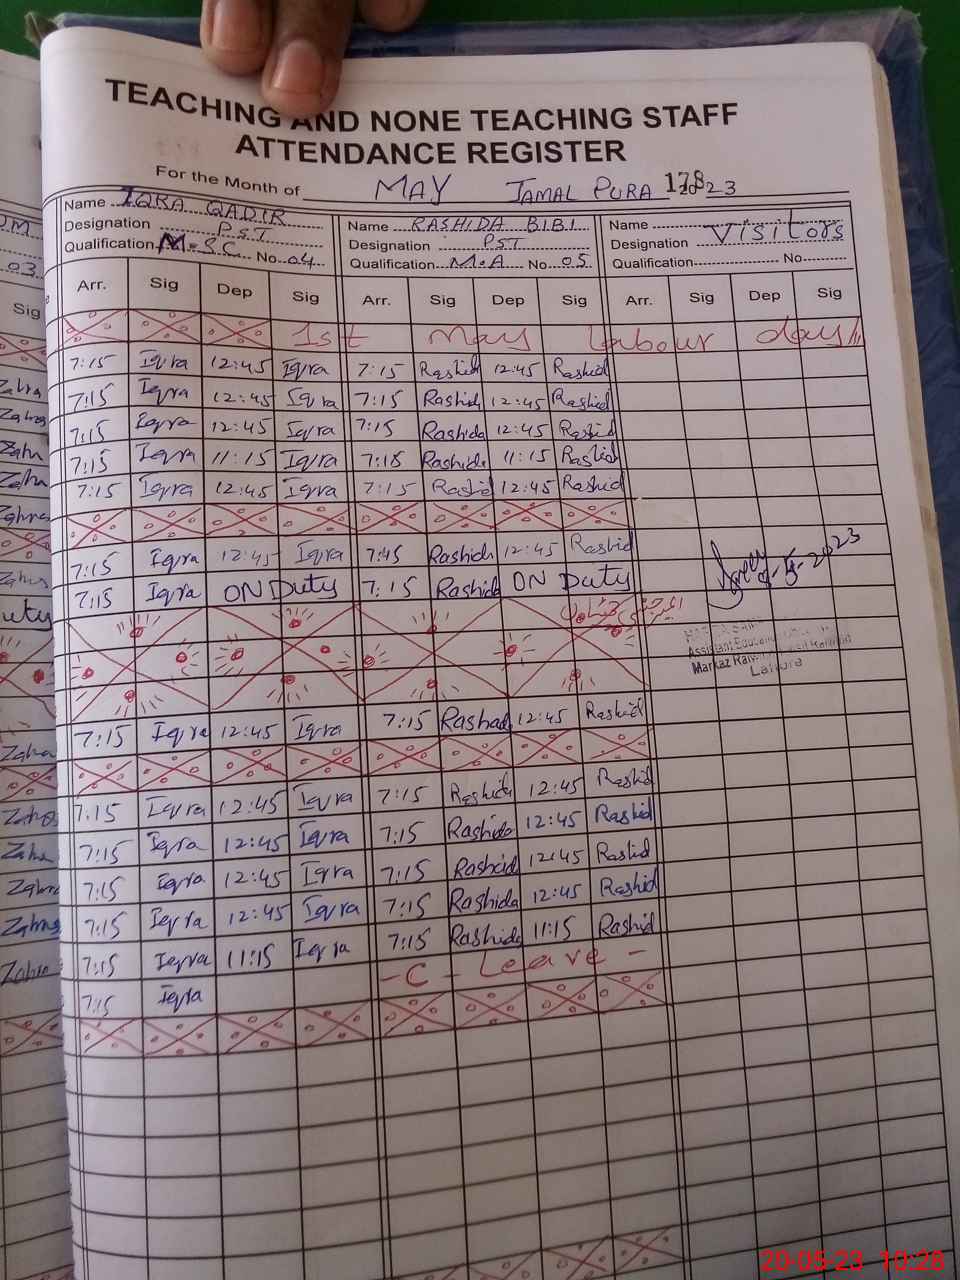 TEACHING AND NONE TEACHING STAFF
ATTENDANCE REGISTER
For the Month of MAY JAMAL PURA 2023
Name IQRA QADIR Name RASHIDA BIBI Name Visitors
Designation PST Designation PST Designation
Qualification M.SC No 04 Qualification M.A No 05 Qualification No
Arr. Sig Dep Sig Arr. Sig Dep Sig Arr. Sig Dep Sig
1st May Labour day
7:15 Iqra 12:45 Iqra 7:15 Rashid 12:45 Rashid
7:15 Iqra 12:45 Iqra 7:15 Rashid 12:45 Rashid
7:15 Iqra 12:45 Iqra 7:15 Rashida 12:45 Rashid
7:15 Iqra 11:15 Iqra 7:15 Rashida 11:15 Rashid
7:15 Iqra 12:45 Iqra 7:15 Rashid 12:45 Rashid
7:15 Iqra 12:45 Iqra 7:45 Rashida 12:45 Rashid
7:15 Iqra ON Duty 7:15 Rashida ON Duty
Markaz
Lahore
7:15 Iqra 12:45 Iqra 7:15 Rashada 12:45 Rashid
7:15 Iqra 12:45 Iqra 7:15 Rashida 12:45 Rashid
7:15 Iqra 12:45 Iqra 7:15 Rashida 12:45 Rashid
7:15 Iqra 12:45 Iqra 7:15 Rashid 12:45 Rashid
7:15 Iqra 12:45 Iqra 7:15 Rashida 12:45 Rashid
7:15 Iqra 11:15 Iqra 7:15 Rashida 11:15 Rashid
7:15 Iqra - C - Leave -
20-05-23 10:28